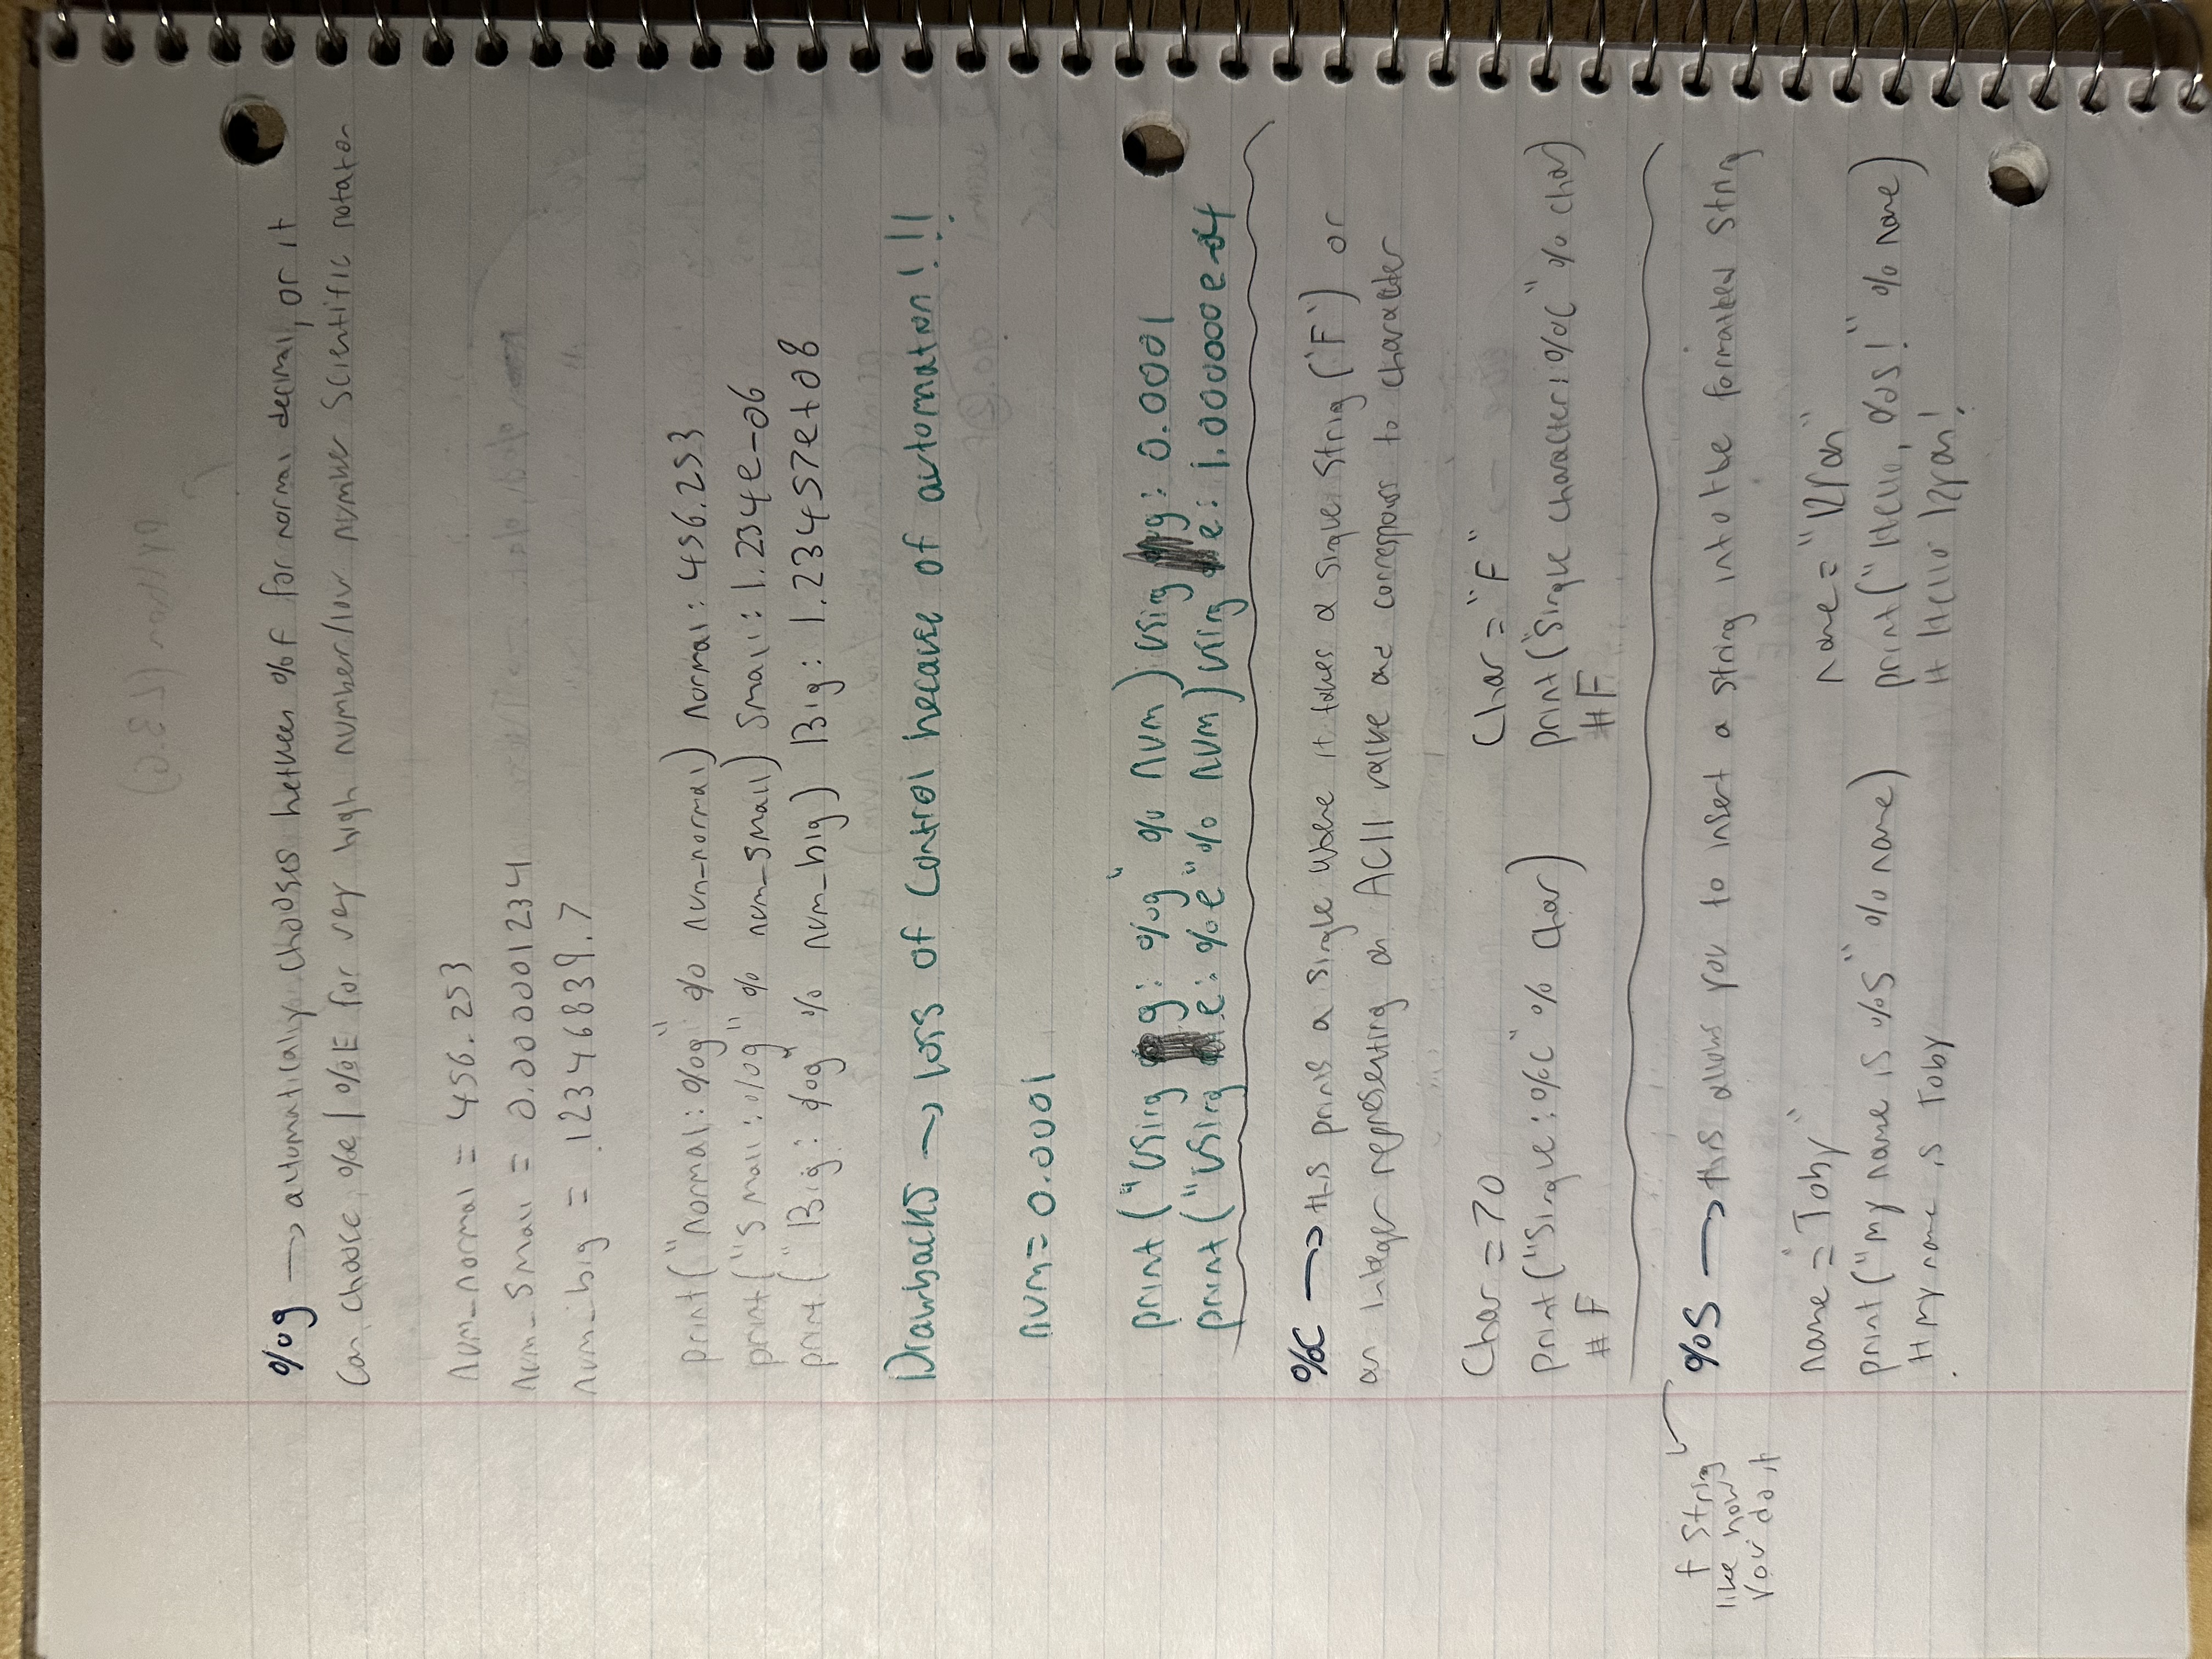 %g → automatically chooses between %f for normal decimal, or it
can choose %e / %E for very high number/low number scientific notation
num_normal = 456.253
num_small = 0.000001234
num_big = 12346839.7
print("normal: %g" % num_normal) normal: 456.253
print("Small: %g" % num_small) Small: 1.234e-06
print("Big: %g" % num_big) Big: 1.23457e+08
Drawbacks → loss of control because of automation!!!
num = 0.0001
print("Using g: %g" % num) Using g: 0.0001
print("Using e: %e" % num) Using e: 1.000000e-04
%c → this prints a single where it takes a single string ('F') or
an integer representing an ACII value and corresponds to character
Char = 70
print("Single: %c" % char)
#F
Char = "F"
print("Single character: %c" % char)
#F
f string
like how
you do it
%s → this allows you to insert a string into the formatted string
name = "Toby"
print("my name is %s" % name)
# my name is Toby
name = "Ryan"
print("Hello, %s!" % name)
# Hello Ryan!